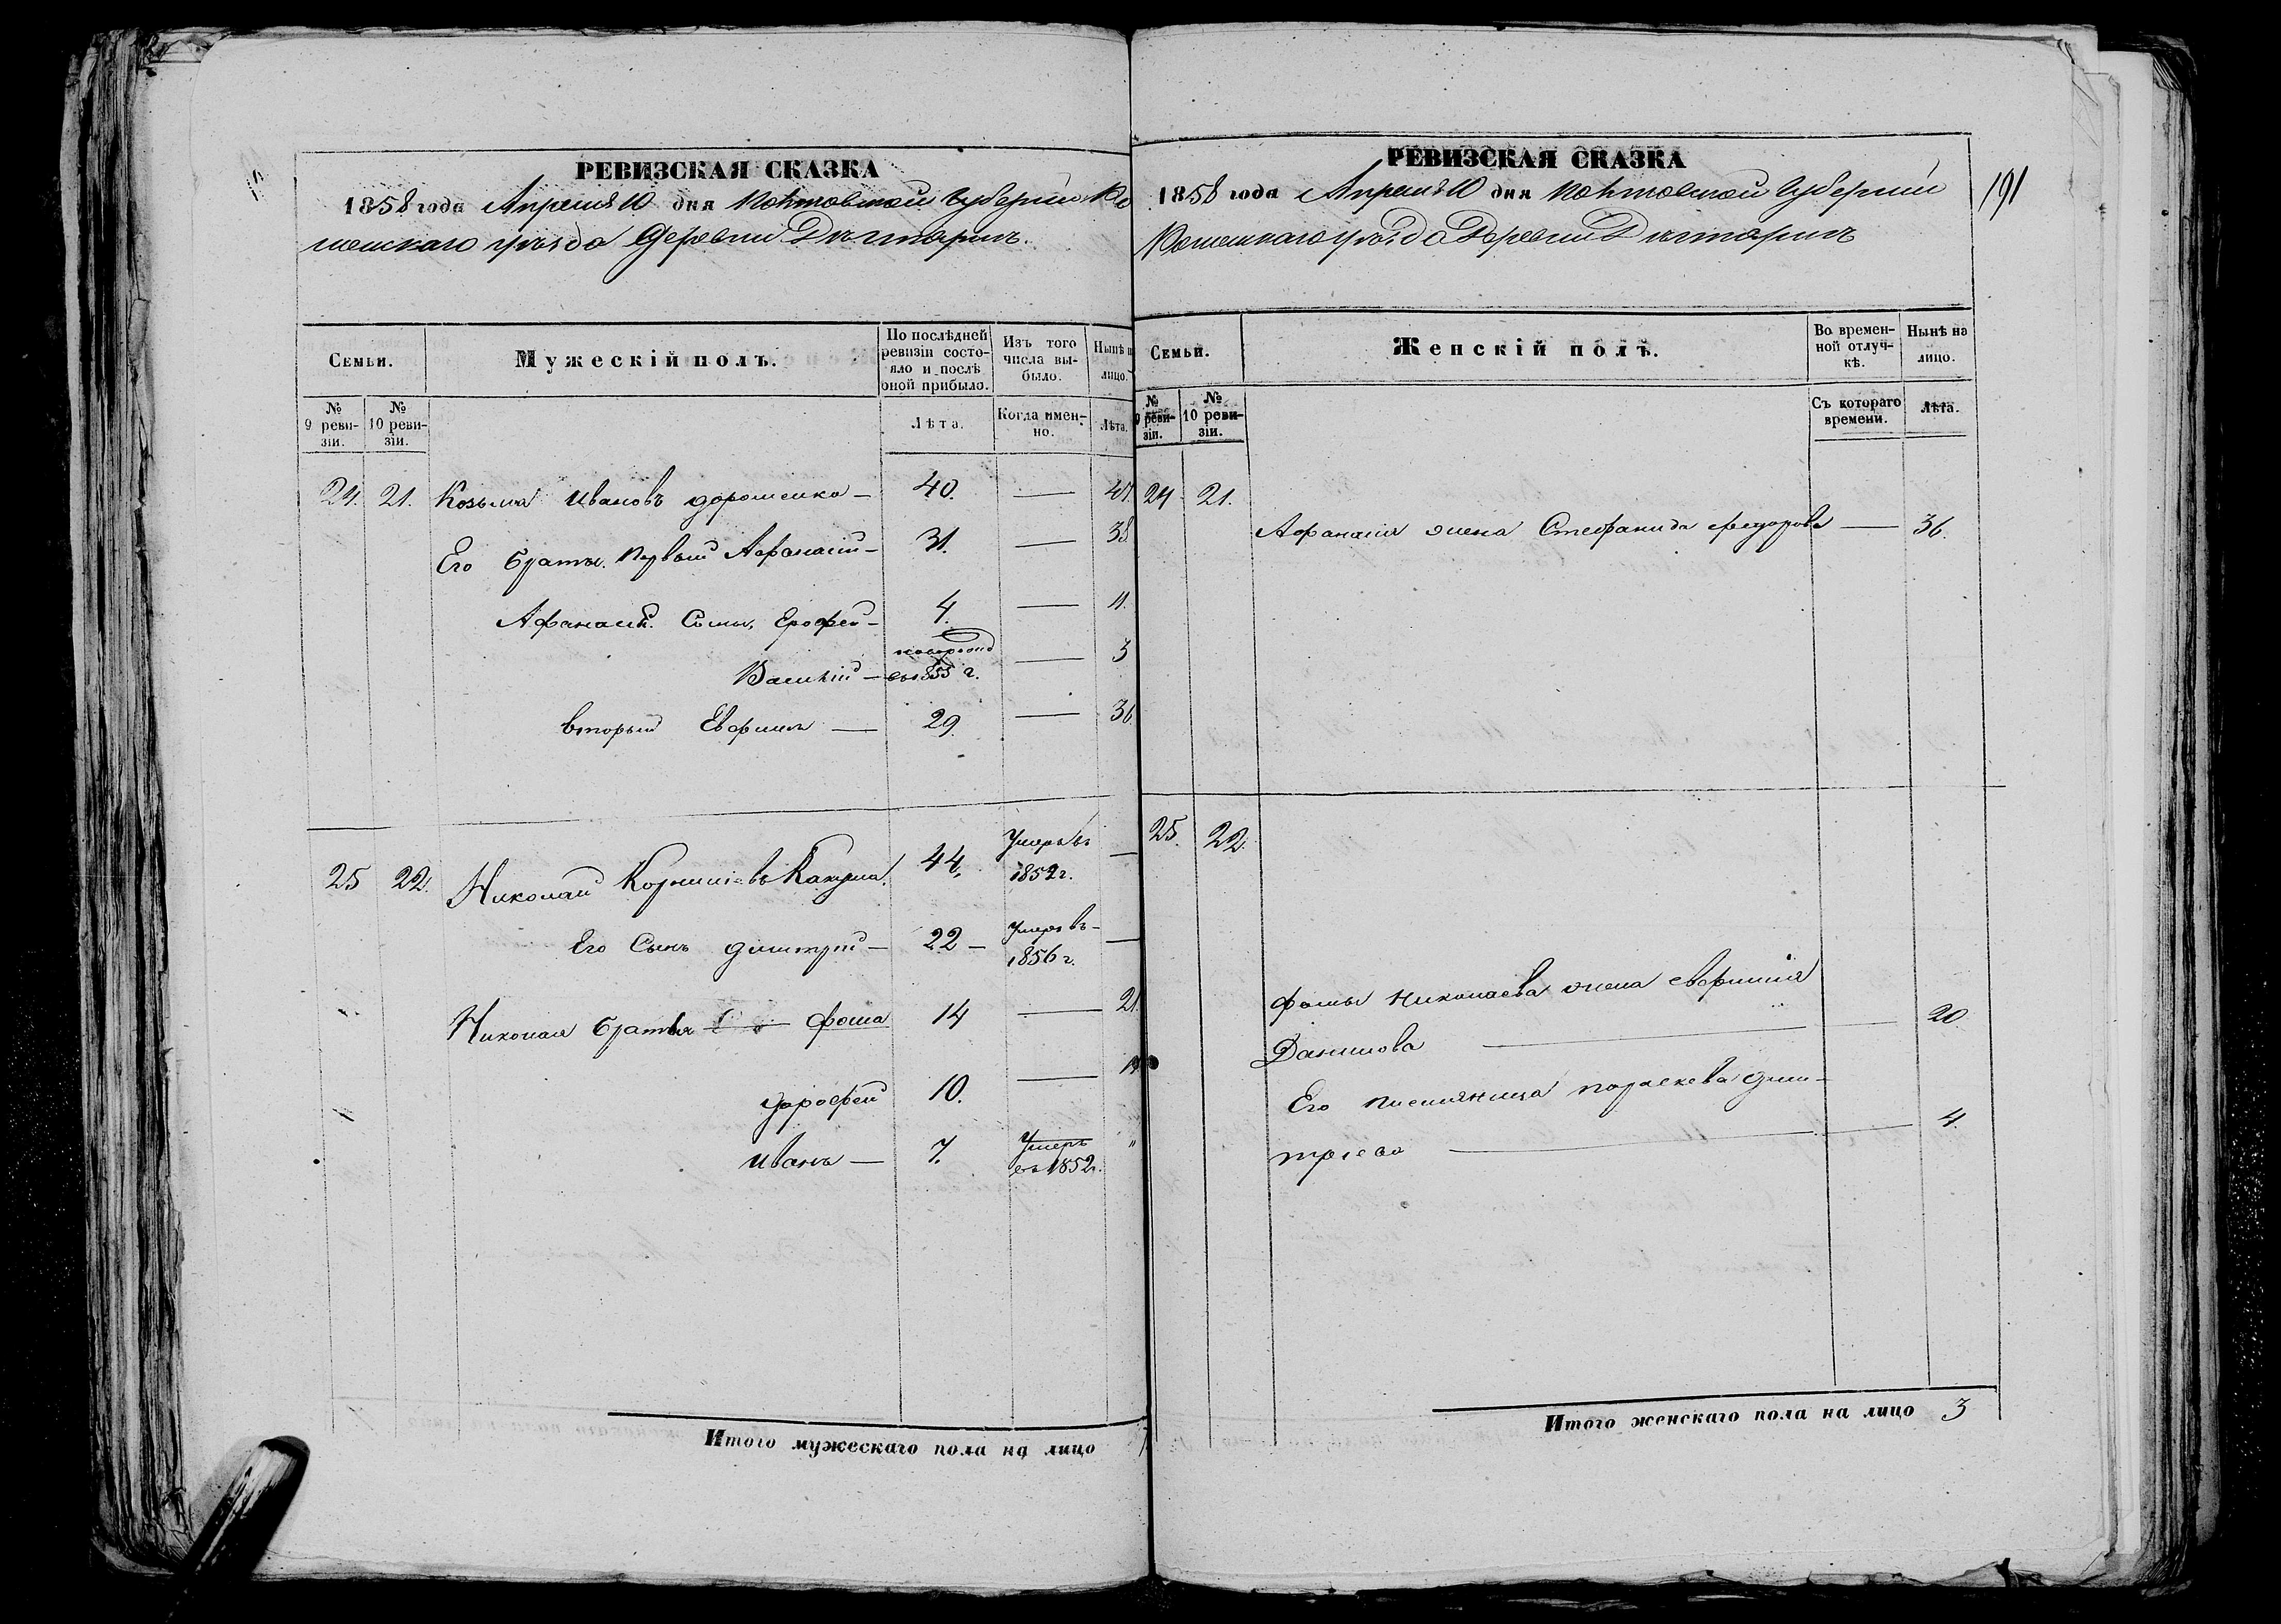 РЕВИЗСКАЯ СКАЗКА
1858 года Апреля 10 дня Полтавской Губернии Ро
менскаго уѣзда Деревни Дегтярки.
Семьи.
Мужескій полъ.
По послѣдней ревизіи состояло и послѣ оной прибыло.
Изъ того числа выбыло.
Нынѣ
лицо.
№ 9 ревизіи.
№ 10 ревизіи.
Лѣта.
Когда именно.
Лѣта.
24. 21. Козьма Ивановъ Дорошенко — 40. — 47
Его Братья. Первый Афанасий — 31. — 38
Афанасия Сыны, Ерофей — 4. — 11.
новорожд
Василий — въ 1855 г. — 3
вторый Евфимъ — 29. — 36.
25 22. Николай Корнилиевъ 44. Умеръ въ 1852 г. —
Его Сынъ Димитрий — 22 — Умеръ въ 1856 г. —
Николая братья Фома 14 — 21.
Дорофей 10. —
Иванъ — 7. Умеръ въ 1852 г. "
Итого мужескаго пола на лицо
РЕВИЗСКАЯ СКАЗКА
191
1858 года Апреля 10 дня Полтавской Губернии
Роменскаго уѣзда Деревни Дегтярки
Семьи.
Женскій полъ.
Во временной отлучкѣ.
Нынѣ на лицо.
№ 9 ревизіи.
№ 10 ревизіи.
Съ котораго времени.
Лѣта.
24. 21.
Афанасия жена Стефанида Федорова — 36.
25. 22.
Фомы Николаева жена Евфимия
Данилова — 20.
Его племянница Параскева Дими-
триева — 4.
Итого женскаго пола на лицо 3